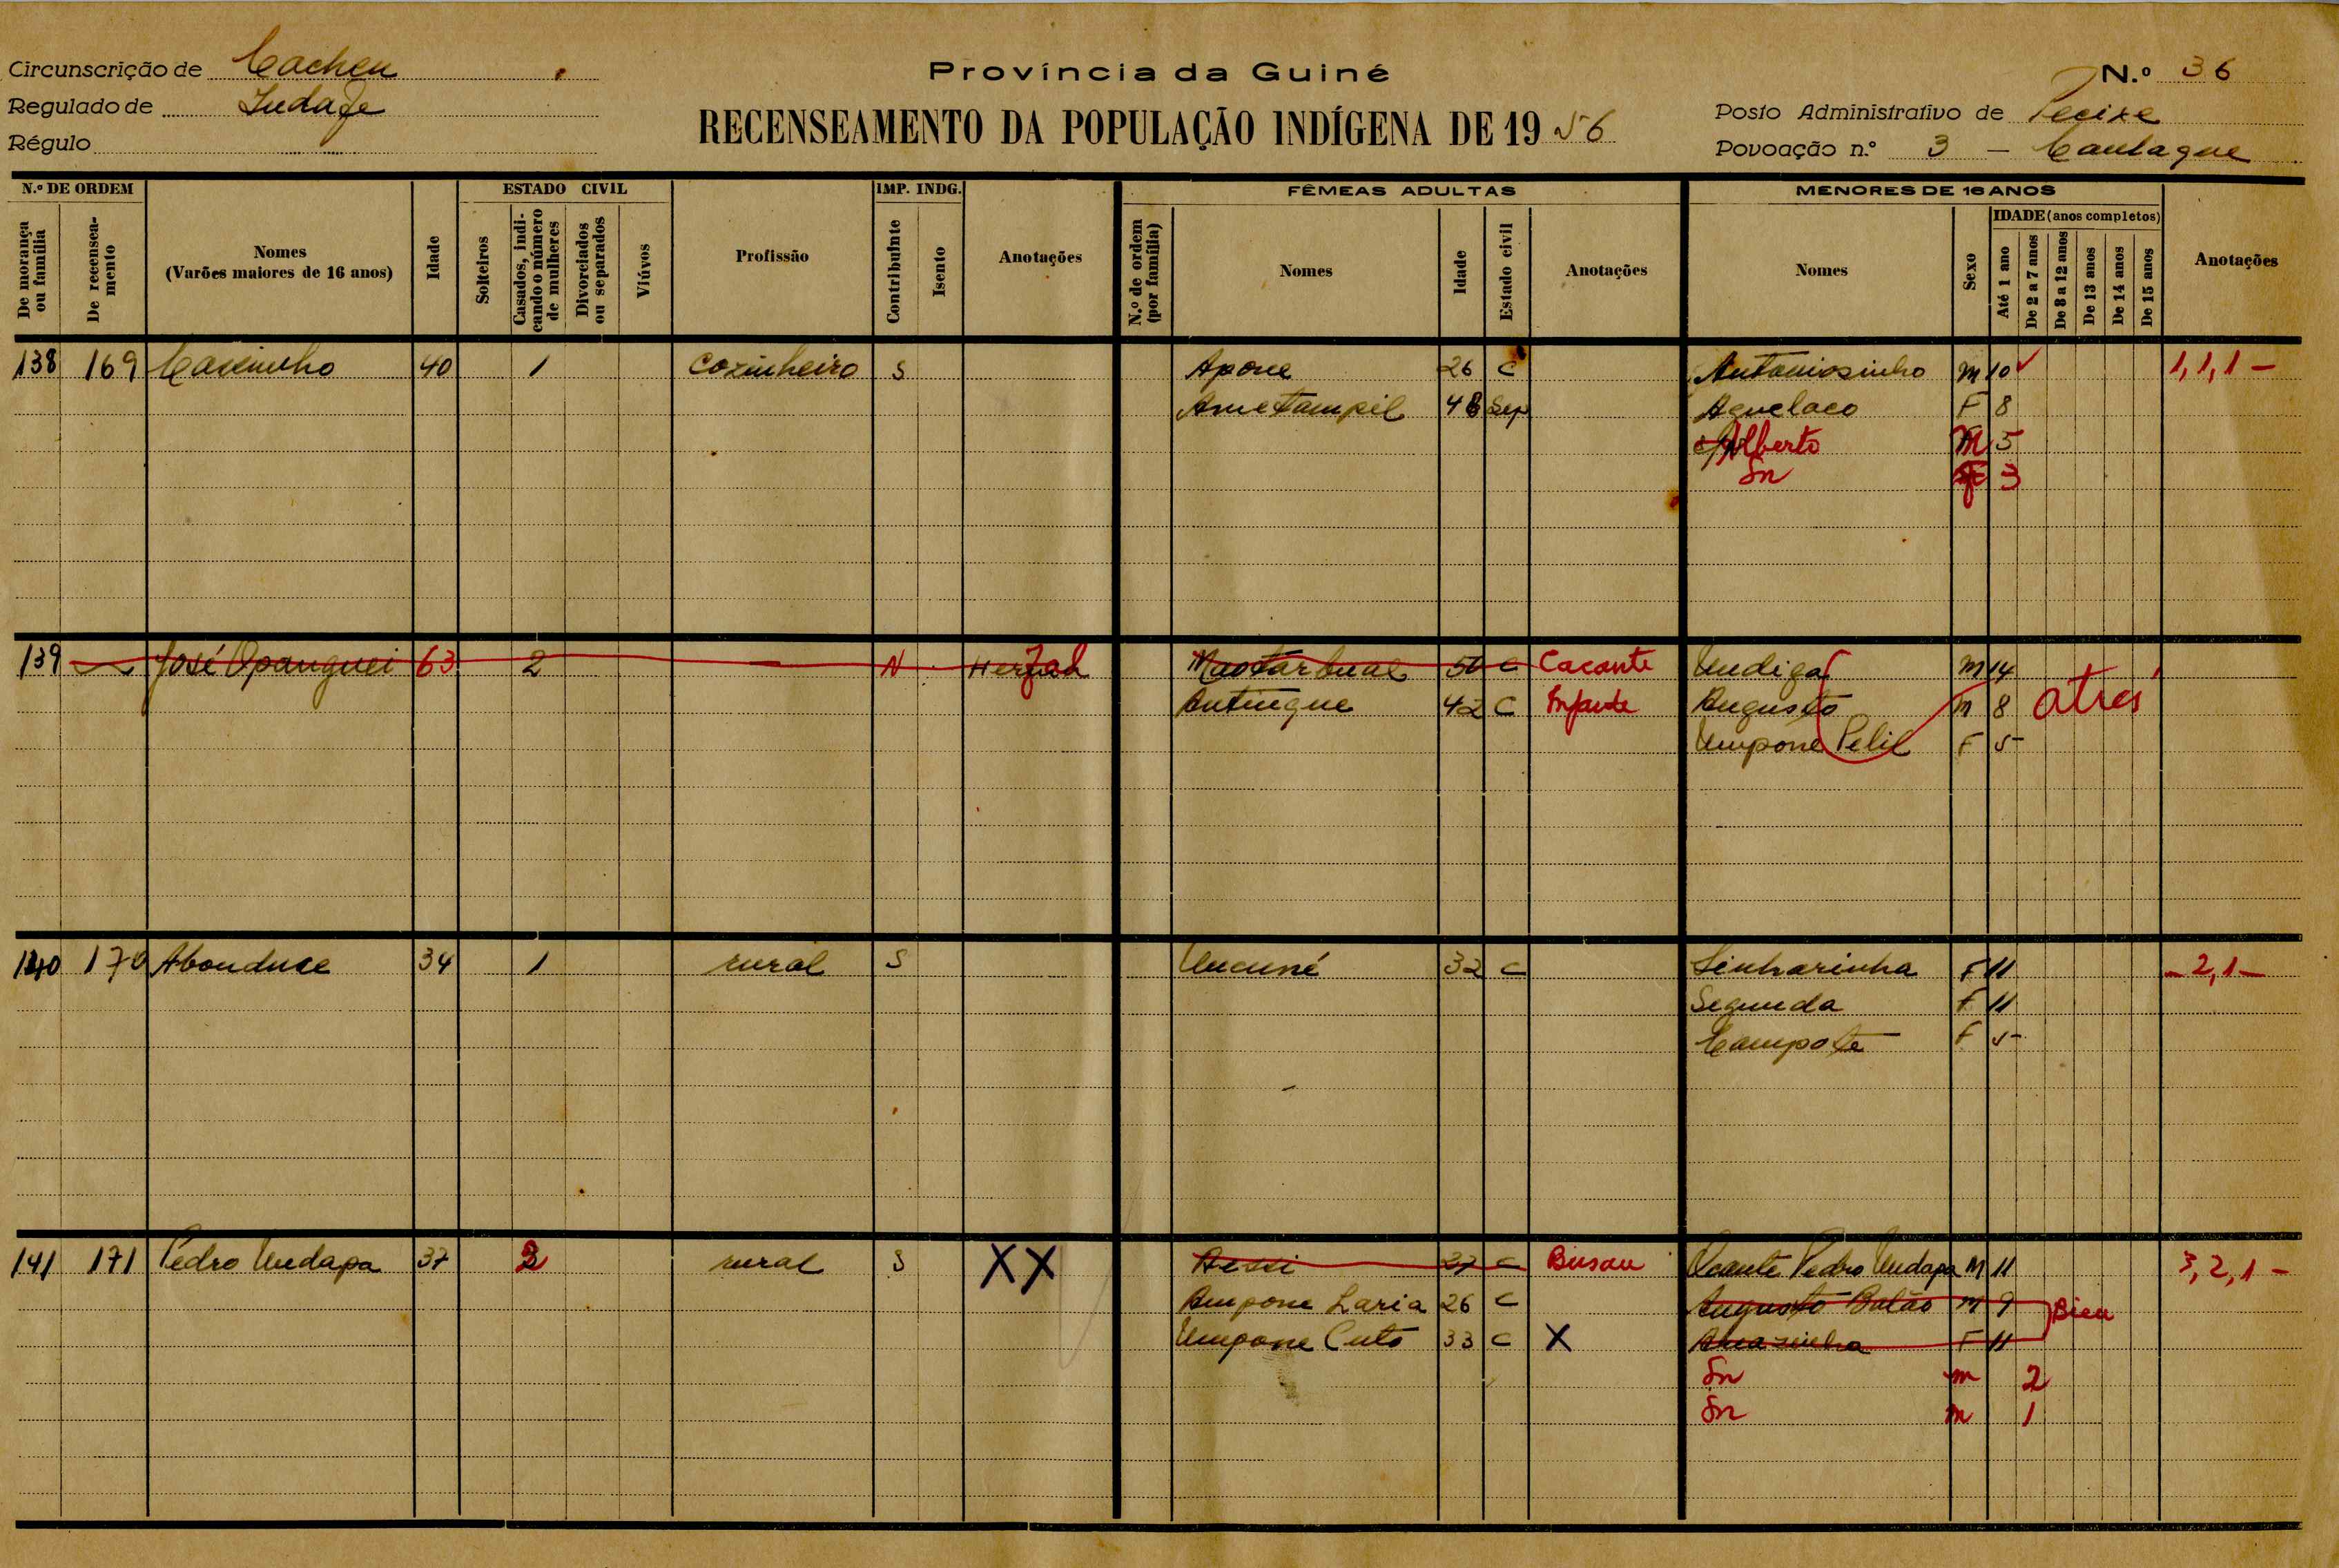 Circunscrição de Cacheu
Regulado de Indafe
Régulo
Província da Guiné
RECENSEAMENTO DA POPULAÇÃO INDÍGENA DE 1956
N.º 36
Posto Administrativo de Pecixe
Povoação n.º 3 - Cantaque
N.º DE ORDEM ESTADO CIVIL IMP. INDG. FÊMEAS ADULTAS MENORES DE 16 ANOS
De morança ou família
De recenseamento
Nomes (Varões maiores de 16 anos)
Idade
Solteiros
Casados, indicando o número de mulheres
Divorciados ou separados
Viúvos
Profissão
Contribuinte
Isento
Anotações
N.º de ordem (por família)
Nomes
Idade
Estado civil
Anotações
Nomes
Sexo
IDADE (anos completos)
Até 1 ano
De 2 a 7 anos
De 8 a 12 anos
De 13 anos
De 14 anos
De 15 anos
Anotações
138 169 40 1 Cozinheiro S Apone 26 C Antoniosinho M 10 1,1,1 -
Ametampil 48 Sep Aguelaco F 8
Alberto M 5
Sn F 3
139 José Opanguei 63 2 N Maotarbual 50 C Cacante Undiga M 14
Antingue 42 C Infante Augusto M 8 atrés
Umpone Pelil F 5
140 170 Abonduce 34 1 rural S Ucuné 32 C Sinharinha F 11 - 2,1 -
Segunda F 11
Campote F 5
141 171 Pedro Undapa 37 2 rural S XX Aessi 27 C Bissau Vicente Pedro Undapa M 11 3,2,1 -
Ampone Laria 26 C Augusto Balão M 9
Umpone Cuto 33 C X Anazinha F 11
Sn m 2
Sn m 1